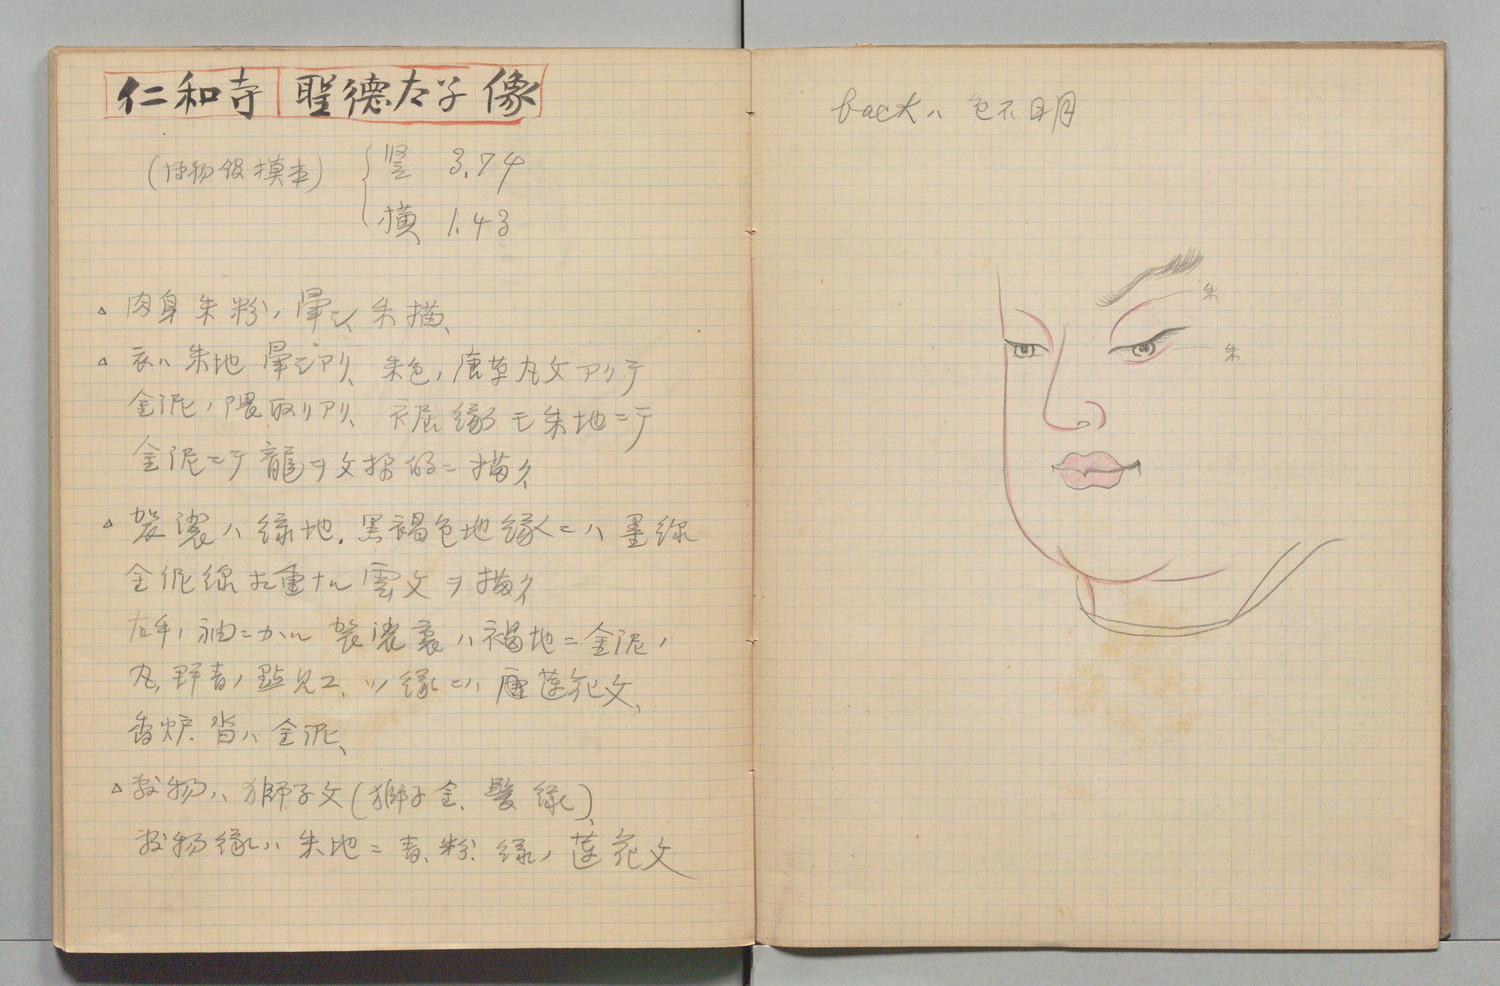 仁和寺 聖德太子像
(博物館摸本)
竪 3.74
横 1.43
△ 肉身朱粉、暈シ 朱描、
△ 衣ハ朱地 暈シアリ、朱色ノ唐草丸文アリテ
金泥ノ隈取リアリ、裾緣モ朱地ニテ
金泥ニテ龍ヲ文様的ニ描ク
△ 袈裟ハ緑地. 黒褐色地緣ニハ墨線
金泥線 重ナル雲文ヲ描ク
右手ノ袖ニカヽル袈裟裏ハ褐地ニ金泥ノ
丸, 群青ノ點見エ、ソノ緣ニハ 蓮花文、
香炉. 沓ハ金泥、
△ 敷物ハ獅子文(獅子金. 髪緑)、
敷物緣ハ朱地ニ青. 粉. 緑ノ蓮花文
backハ 色不明
朱
朱